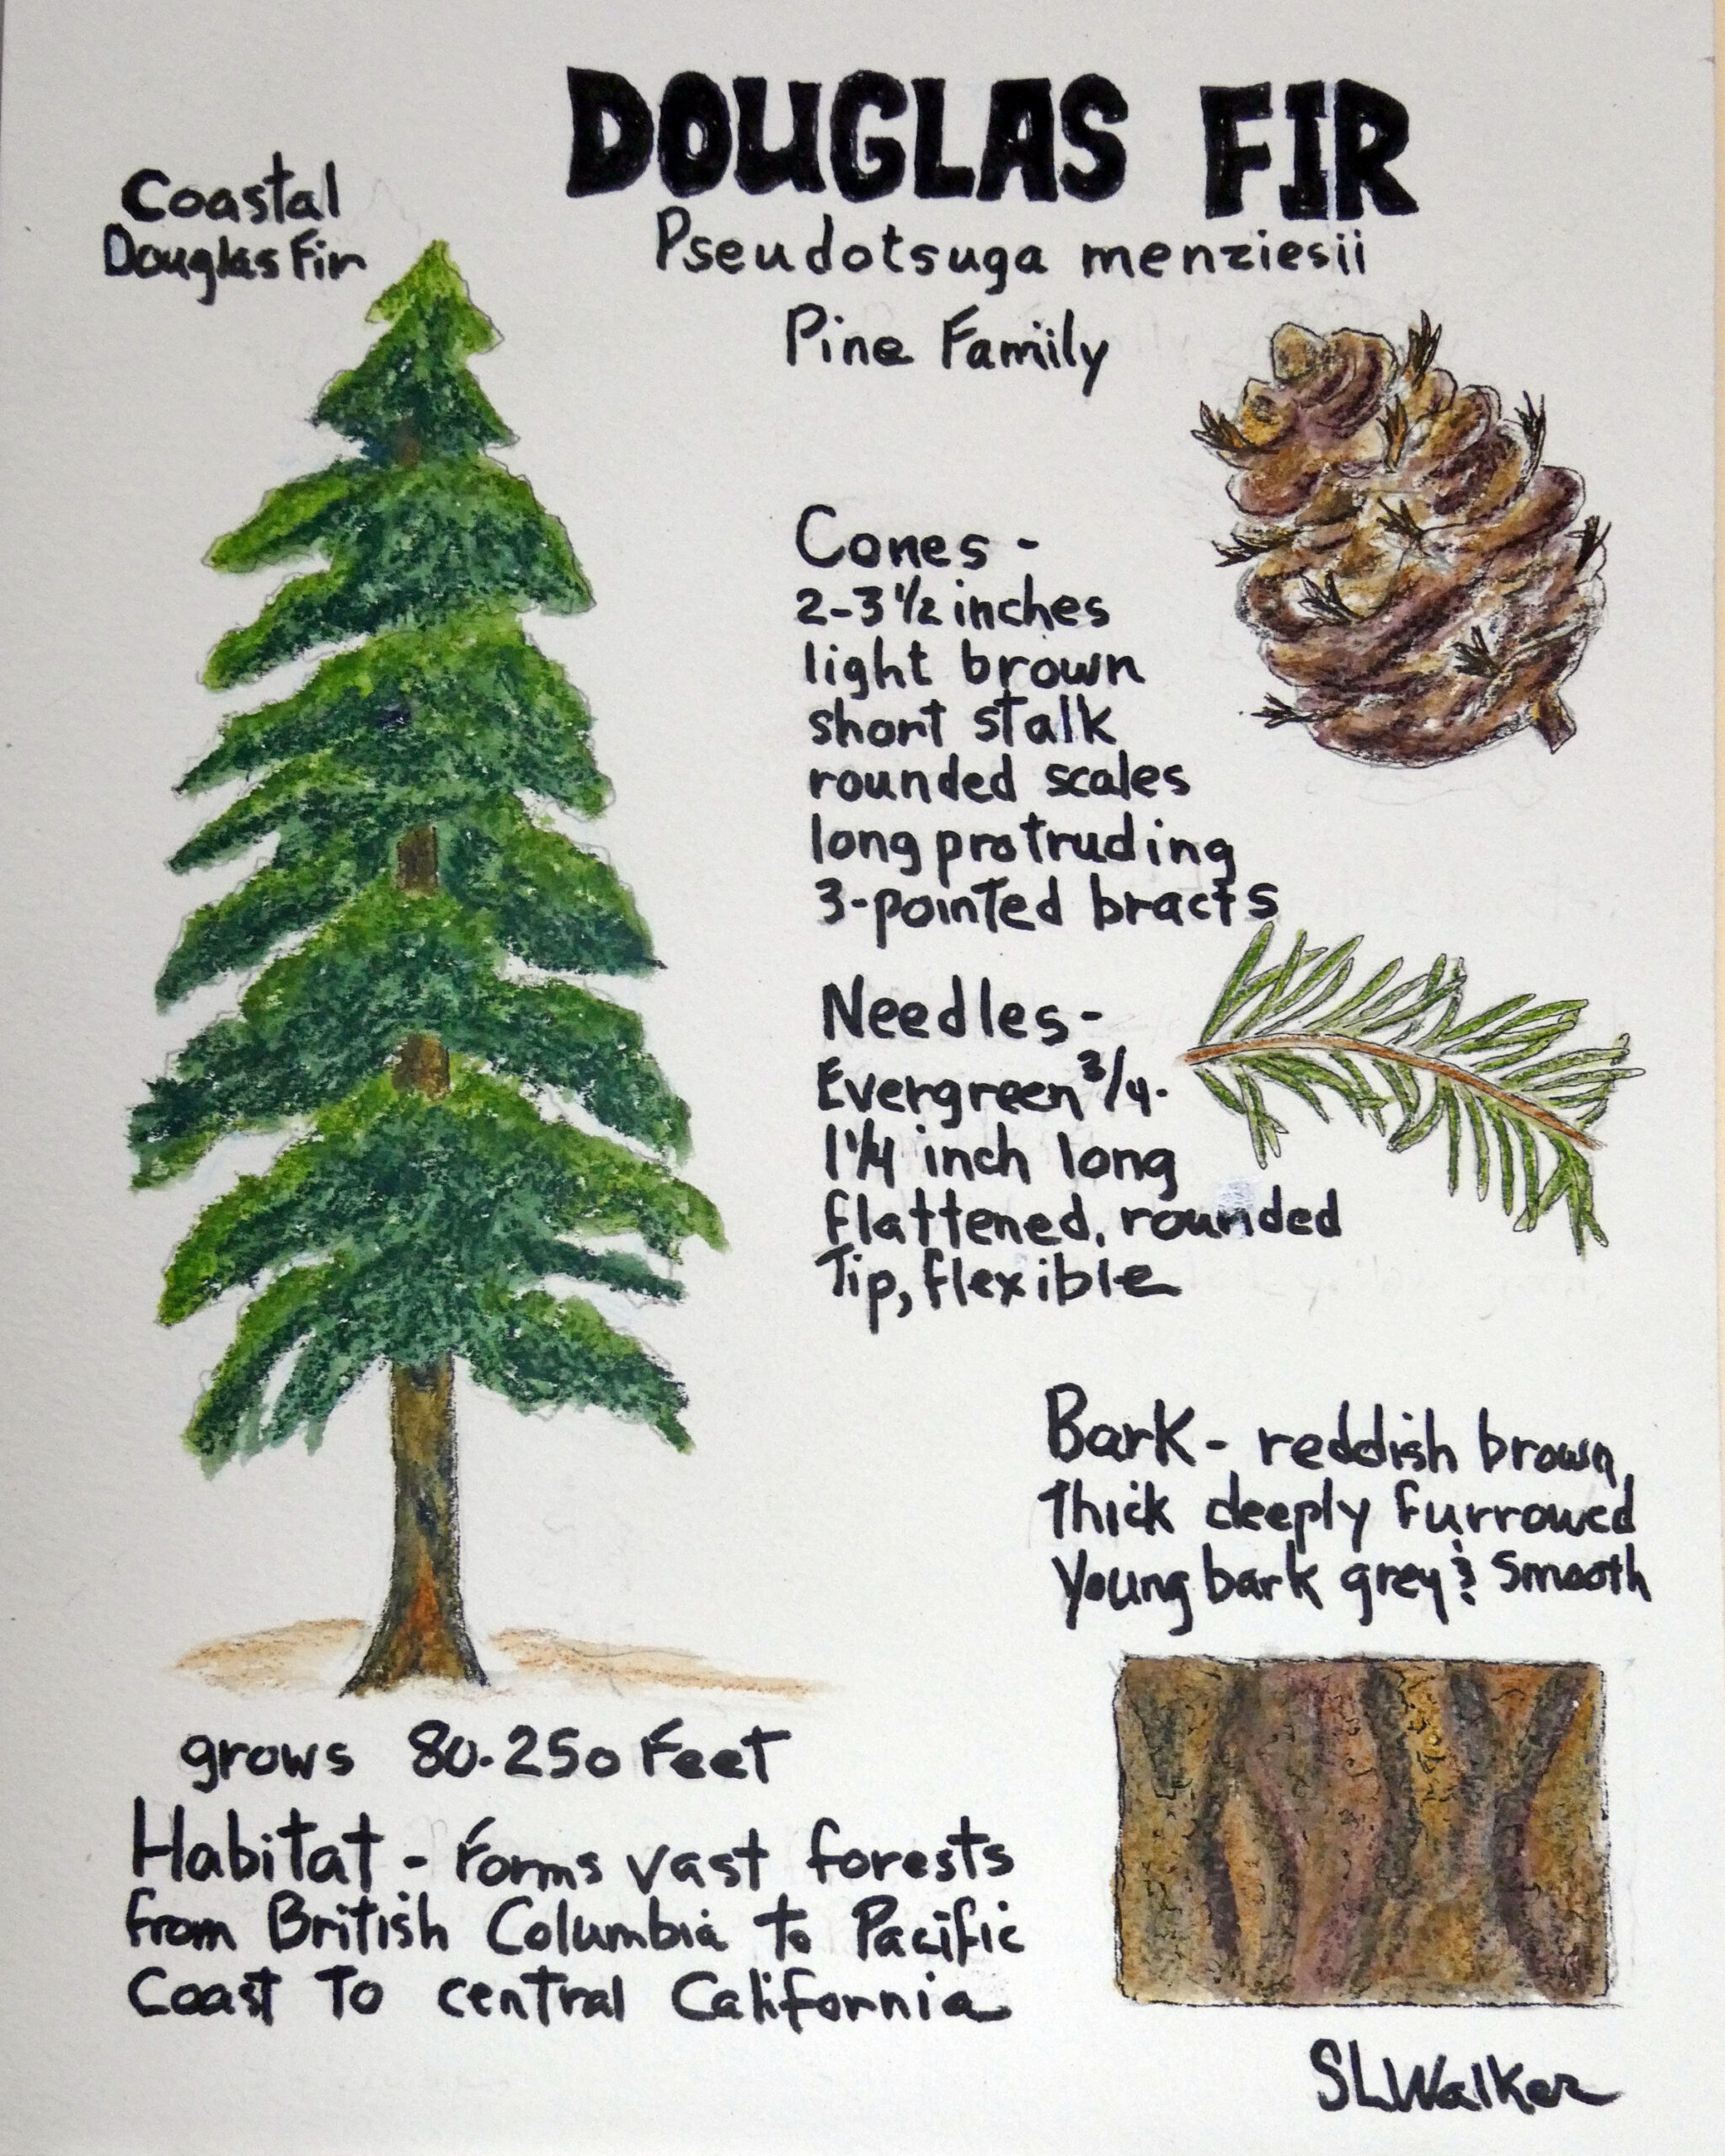 DOUGLAS FIR
Pseudotsuga menziesii
Pine Family
Coastal
Douglas Fir
Cones -
2-3 1/2 inches
light brown
short stalk
rounded scales
long protruding
3-pointed bracts
Needles -
Evergreen 3/4-
1 1/4 inch long
flattened, rounded
Tip, flexible
Bark - reddish brown,
Thick deeply furrowed
Young bark grey & smooth
grows 80-250 Feet
Habitat - Forms vast forests
from British Columbia to Pacific
Coast To central California
SLWalker